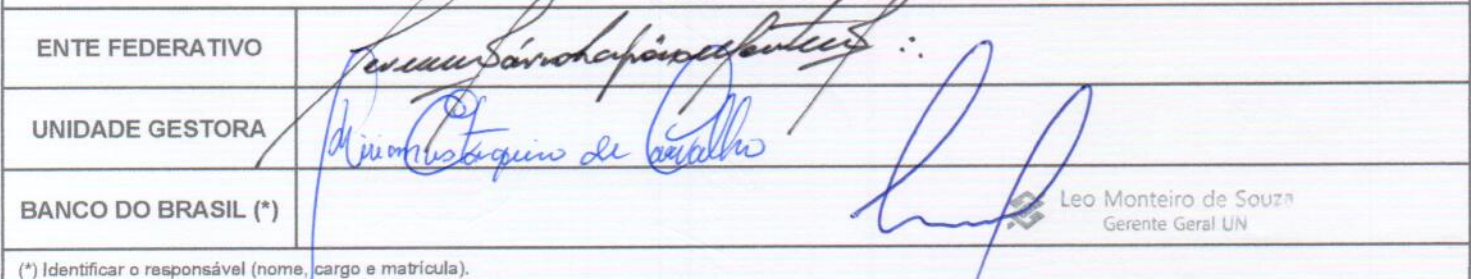 ENTE FEDERATIVO
UNIDADE GESTORA
de Carvalho
BANCO DO BRASIL (*)
Leo Monteiro de Souza
Gerente Geral UN
(*) Identificar o responsável (nome, cargo e matrícula).